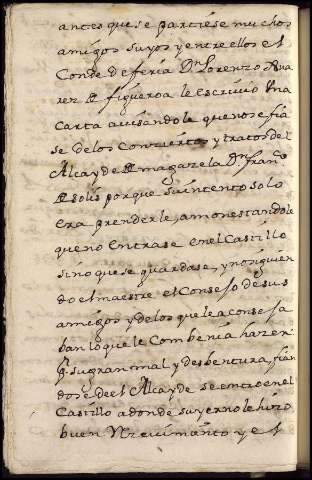 antes que se partiese muchos
amigos suyos y entre ellos el
Conde de feria Dn Lorenzo Sua
rez de figueroa le escrivio Una
Carta avisandole que no se fia
se de los Conciertos y tratos del
Alcayde de magazela Dn franco
de solis porque su intento solo
era prenderle, amonestandole
que no entrase en el Castillo
sino que se guardase, y no siguien
do el maestre el Consejo de sus
amigos y de los que le aconseja
ban lo que le Combenia hazer
pr su gran mal y desbentura, fian
dose de el Alcayde se entro en el
Castillo a donde su yerno le hizo
buen Recivimiento y el